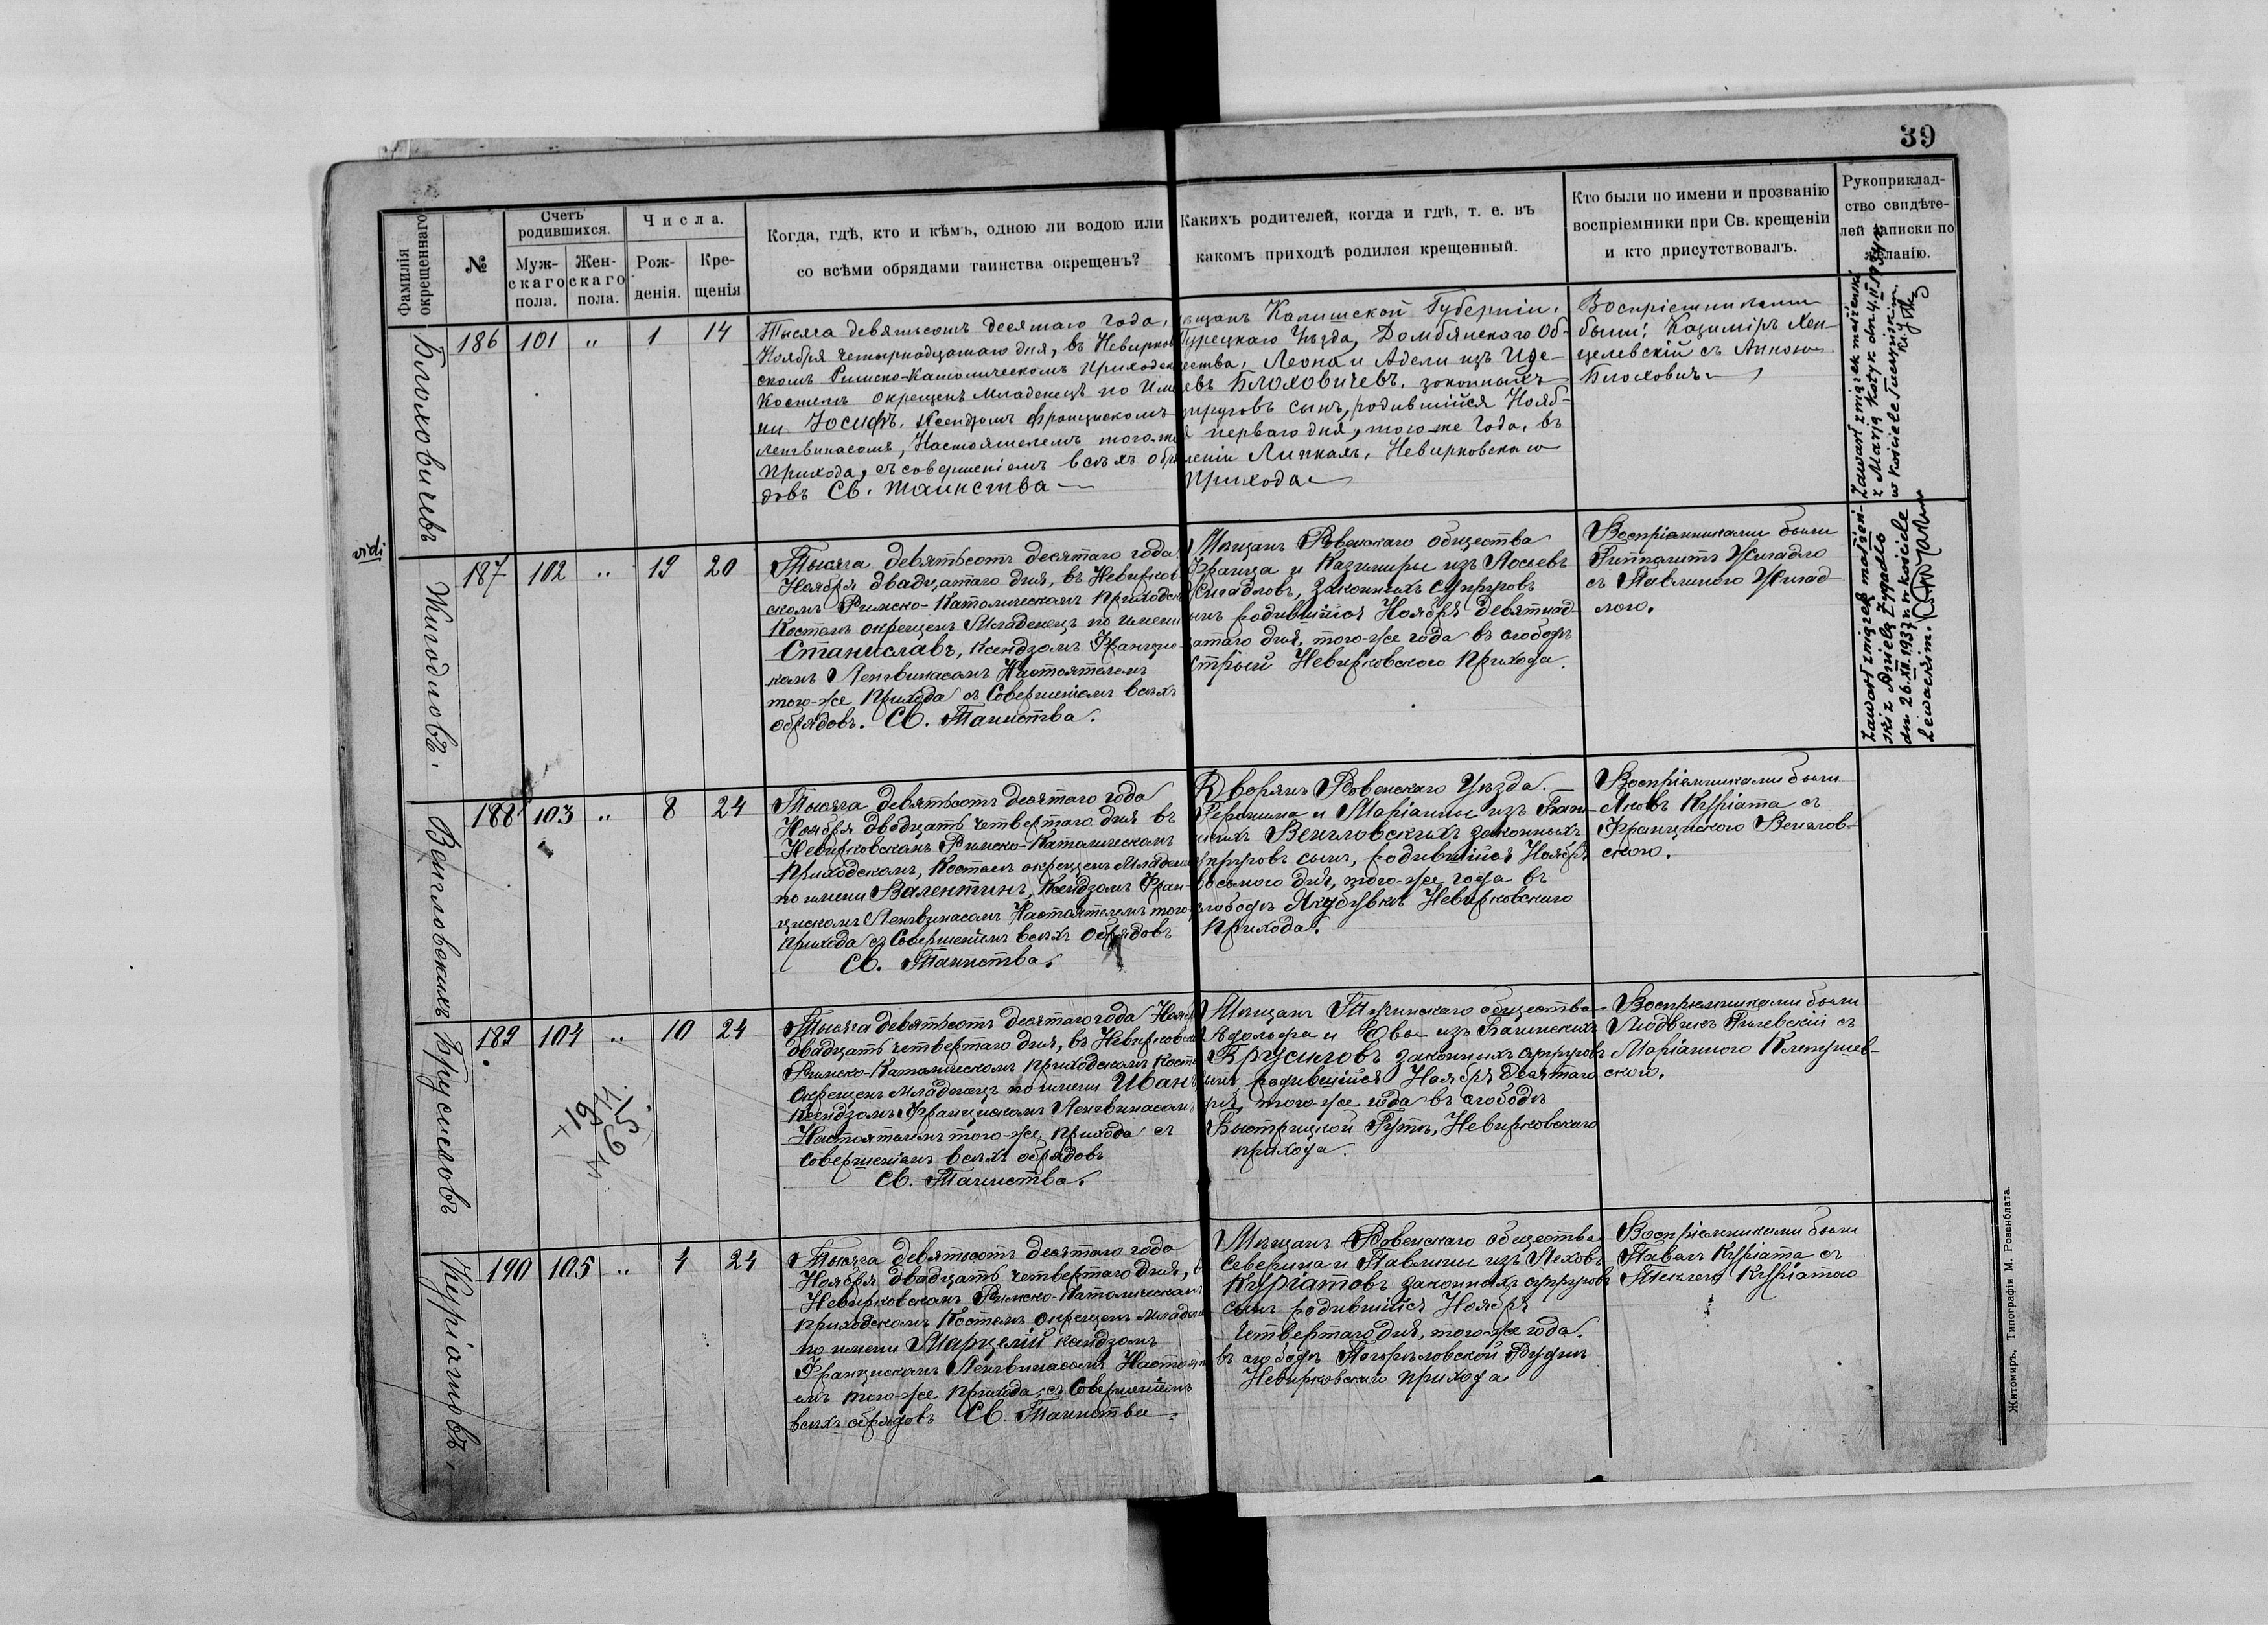 39
Фамилія окрещеннаго
№
Счетъ родившихся.
Муж-
скаго
пола.
Жен-
скаго
пола.
Числа.
Рож-
денія.
Кре-
щенія
Когда, гдѣ, кто и кѣмъ, одною ли водою или
со всѣми обрядами таинства окрещенъ?
Какихъ родителей, когда и гдѣ, т. е. въ
какомъ приходѣ родился крещенный.
Кто были по имени и прозванію
воспріемники при Св. крещеніи
и кто присутствовалъ.
Рукоприклад-
ство свидѣте-
лей записки по
желанію.
Блоховичевъ
186 101 " 1 14
Тысяча девятьсотъ десятаго года,
Ноября четырнадцатаго дня, въ Невирков
скомъ Римско-Католическомъ приходск
Костелѣ окрещенъ младенецъ по Име
ни Іосифъ. Ксендзомъ Францискомъ
Ленгвинасомъ, Настоятелемъ того-же
прихода, съ совершеніемъ всѣхъ обря
довъ Св. таинства
щанъ Калишской Губерніи,
Турецкаго Уѣзда, Домбянскаго Об-
щества, Леона и Адели изъ
Блоховичевъ, законныхъ
супруговъ сынъ, родившійся Нояб-
я перваго дня, того-же года, въ
леніи Липкахъ, Невирковскаго
прихода
Воспріемниками
были: Казиміръ Хен-
целевскій съ Анною
Блоховичъ
Zawarł związek małżeński
z Marją Kotyk dn. 4.II.1934 r.
w kościele Tuczyńskim.
vidi
Жигадловъ.
187 102 " 19 20
Тысяча девятьсотъ десятаго года
Ноября двадцатаго дня, въ Невирков
скомъ Римско-Католическомъ приходск
Костелѣ окрещенъ Младенецъ по имени
Станиславъ, Ксендзомъ Францис-
комъ Ленгвинасомъ Настоятелемъ
того-же прихода съ Совершеніемъ всѣхъ
обрядовъ. Св. Таинства.
Мѣщанъ Ровенскаго общества
Франца и Казимиры изъ Лосьевъ
Жигадловъ, Законныхъ супруговъ
сынъ родившійся Ноября девятнад-
цатаго дня, того-же года въ слободѣ
Стрый Невирковского прихода.
Воспріемниками были
Ипполитъ Жигадло
съ Павлиною Жигад-
лого.
Zawarł związek małżeń-
ski z Anielą Żygadło
dn. 26.XII.1937 r. w kościele
Lewackim.
Венгловскихъ
188 103 " 8 24
Тысяча девятьсотъ десятаго года
Ноября двадцать четвертаго дня въ
Невирковскомъ Римско-Католическомъ
приходскомъ, Костелѣ окрещенъ Младенец
по имени Валентинъ, Ксендзомъ Фран-
цискомъ Ленгвинасомъ Настоятелемъ того-
прихода съ Совершеніемъ всѣхъ обрядовъ
Св. Таинства.
Дворянъ Ровенскаго Уѣзда
и Маріанны изъ
Венгловскихъ законныхъ
супруговъ сынъ, родившійся Ноября
восьмого дня, того-же года въ
слободѣ Якубувкѣ Невирковского
прихода.
Воспріемниками были
Яковъ Курьята съ
Францискою Венглов-
скою.
Брусиловъ
189 104 " 10 24
Тысяча девятьсотъ десятаго года Нояб
двадцать четвертаго дня, въ Невирковск
Римско-Католическомъ приходскомъ Косте
Окрещенъ младенецъ по имени Иванъ
Ксендзомъ Францискомъ Ленгвинасомъ
Настоятелемъ того-же прихода съ
Совершеніемъ всѣхъ обрядовъ
Св. Таинства.
Мѣщанъ общества
Адольфа и Евы изъ Багинскихъ
Брусиловъ законныхъ супруговъ
сынъ, родившійся Ноября десятаго
дня, того-же года въ слободѣ
Быстрицкой Гутѣ, Невирковскаго
прихода.
Воспріемниками были
Людвикъ съ
Маріанною
скою.
Куріатовъ.
190 105 " 4 24
Тысяча девятьсотъ десятаго года
Ноября двадцать четвертаго дня, в
Невирковскомъ Римско-Католическомъ
приходскомъ Костелѣ Окрещенъ Младен
по имени Марцелій ксендзомъ
Францискомъ Ленгвинасомъ Настоят
емъ того-же прихода, съ Совершеніемъ
всѣхъ обрядовъ Св. Таинства
Мѣщанъ Ровенскаго общества
Северина и Павлины изъ Леховъ
Куріатовъ законныхъ супруговъ
сынъ родившійся Ноября
Четвертаго дня, того-же года.
въ слободѣ Погорѣловской Рудни
Невирковскаго прихода
Воспріемниками были
Павелъ Куріата съ
Теклею Куріатою
Житомиръ, Типографія М. Розенблата.